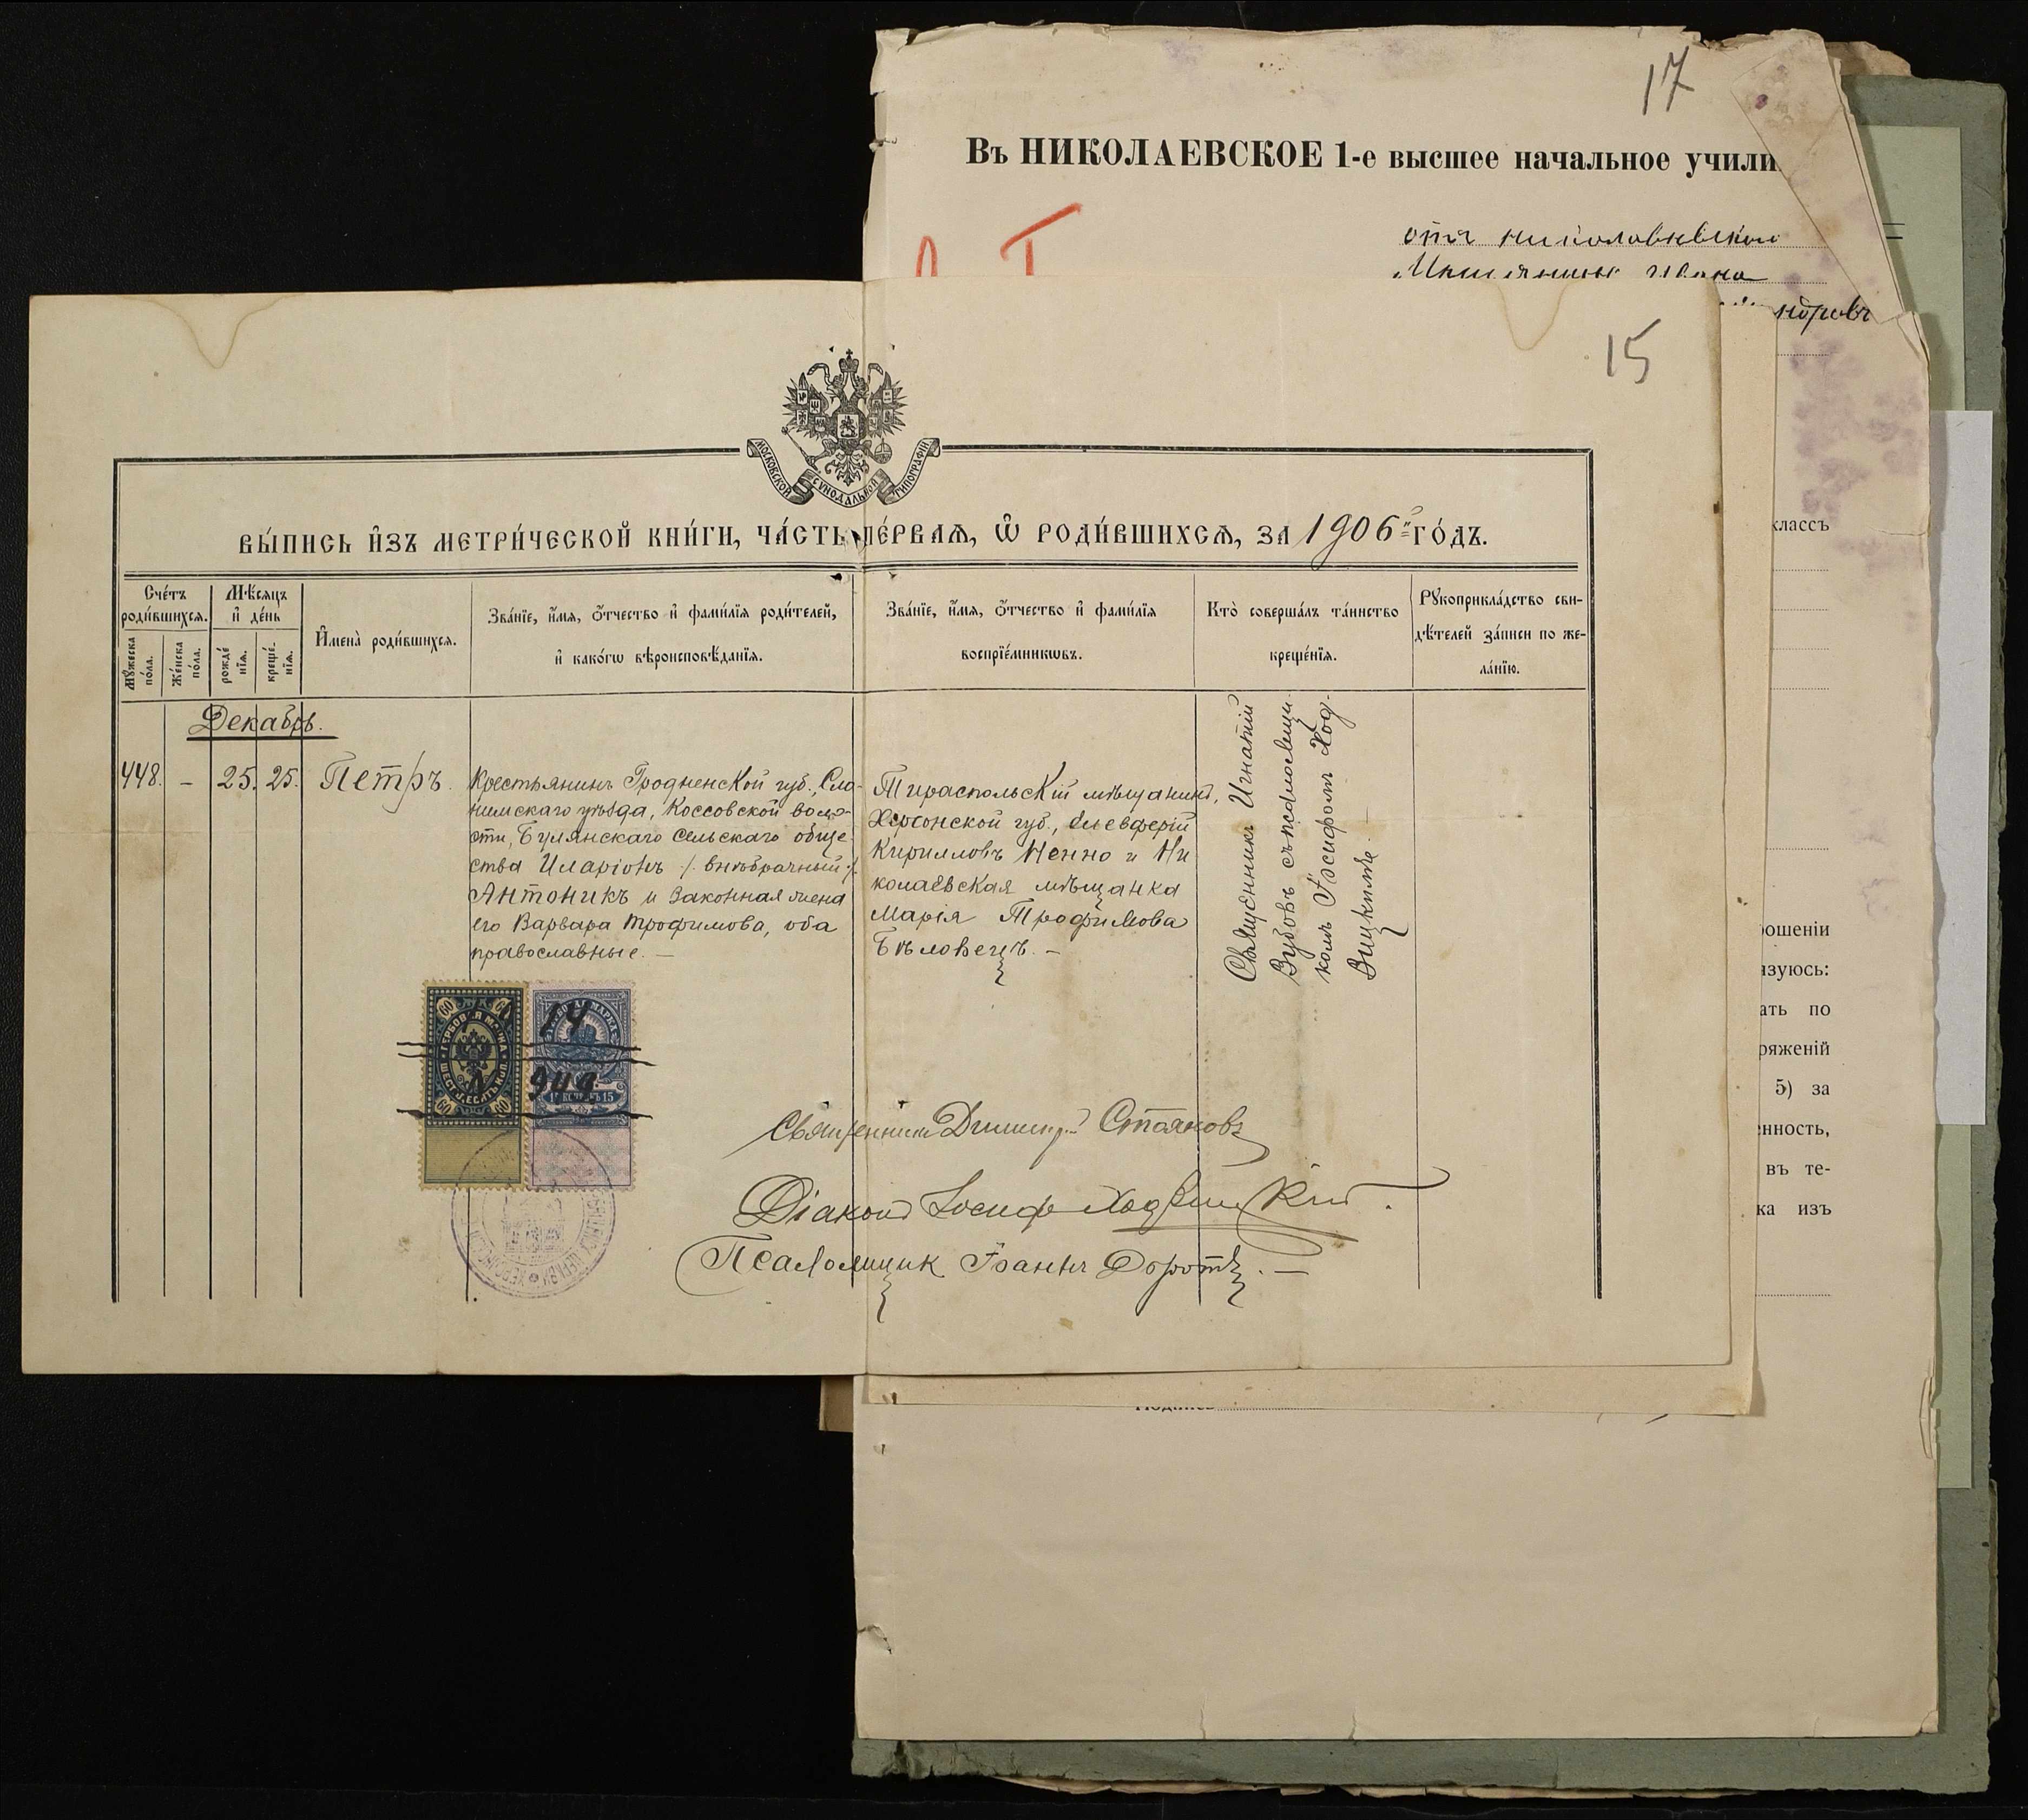 17
Въ НИКОЛАЕВСКОЕ 1-е высшее начальное учили
отъ
15
МОСКОВСКОЙ СѴНОДАЛЬНОЙ ТИПОГРАФІИ
ВЫ́ПИСЬ И҆ЗЪ МЕТРИ́ЧЕСКОЙ КНИ́ГИ, ЧА́СТЬ ПЕ́РВАѦ, Ѿ РОДИ́ВШИХСѦ, ЗА 1906 ГО́ДЪ.
Сче́тъ роди́вшихсѧ.
Мѣ́сѧцъ и҆ де́нь
Мꙋ́жеска по́ла.
Же́нска по́ла.
рожде́нїѧ.
креще́нїѧ.
И҆мена̀ роди́вшихсѧ.
Зва́нїе, и҆́мѧ, ѻ҆́тчество и҆ фами́лїѧ роди́телей,
и҆ како́гѡ вѣроисповѣ́данїѧ.
Зва́нїе, и҆́мѧ, ѻ҆́тчество и҆ фами́лїѧ
воспрїе́мникѡвъ.
Кто̀ соверша́лъ та́инство
креще́нїѧ.
Рꙋкоприкла́дство сви-
дѣ́телей за́писи по же-
ла́нїю.
Декабрь.
448. – 25. 25. Петръ.
Крестьянинъ Гродненской губ., Сло-
нимскаго уѣзда, Коссовской воло-
сти, Булянскаго сельскаго обще
ства Иларіонъ /. внѣбрачный ./.
Антоникъ и законная жена
его Варвара Трофимова, оба
православные. –
Тираспольскій мѣщанинъ,
Херсонской губ., Елевферій
Кирилловъ Ненно и Ни
колаевская мѣщанка
Марія Трофимова
Бѣловецъ. –
Священникъ Игнатій
Зубовъ съ псаломщи-
комъ Іосифомъ Ход-
зицкимъ. –
ГЕРБОВАЯ МАРКА
ШЕСТЬДЕСЯТЪ КОП.
60 60 60 60
МАРКА
15 КОПѢЕКЪ 15
Священникъ Димитрій Стояновъ
Діаконъ Іосифъ Ходзицкій.
Псаломщик Іоаннъ Доротъ. –
классъ
рошеніи
язуюсь:
ать по
ряженій
5) за
нность,
въ те-
ка изъ